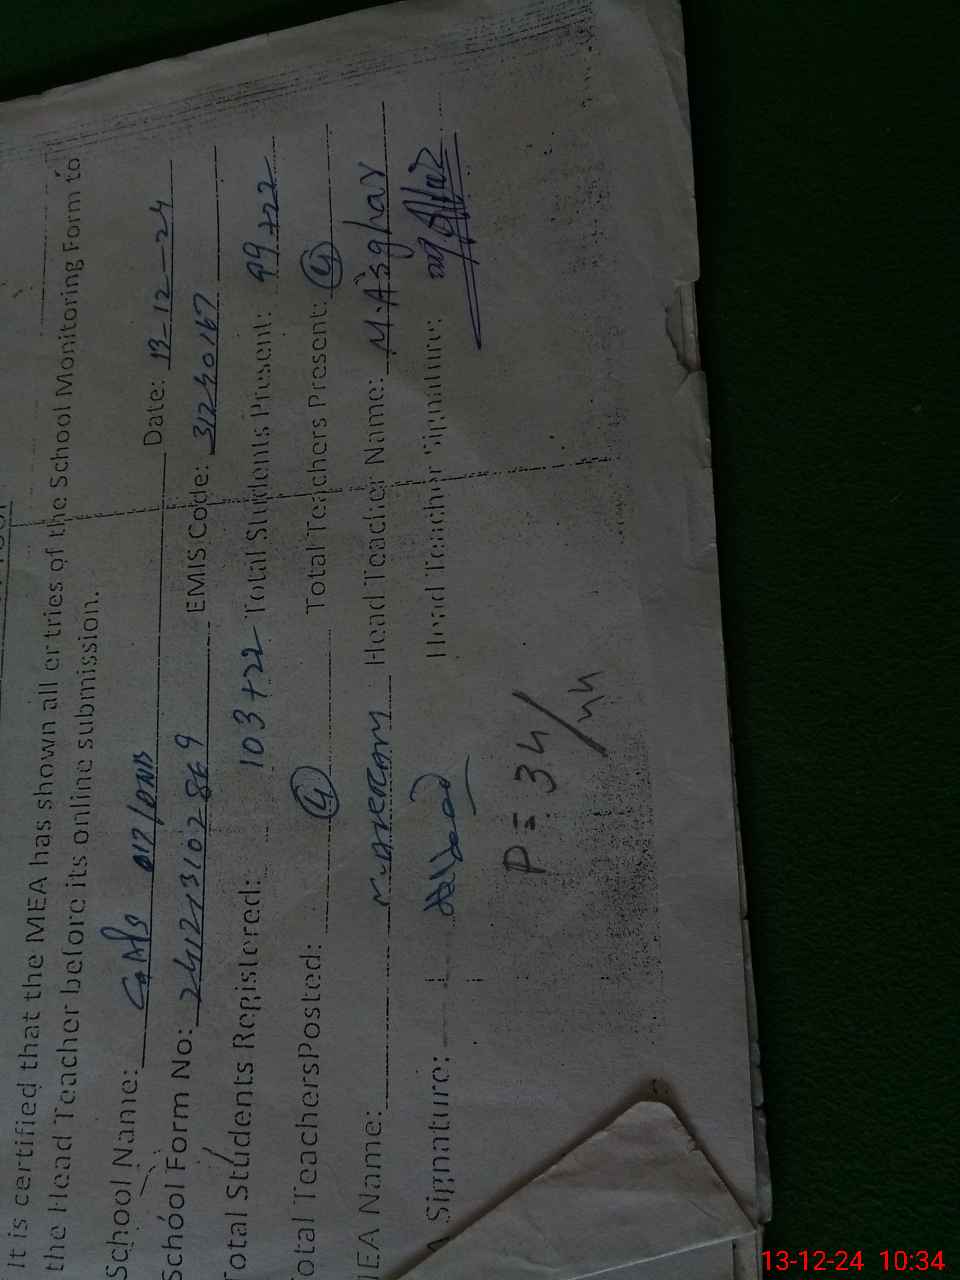 It is certified that the MEA has shown all entries of the School Monitoring Form to
the Head Teacher before its online submission.
School Name: Date: 13-12-24
School Form No: EMIS Code: 31230167
Total Students Registered: 103+22 Total Students Present: 99+22
Total TeachersPosted: 4 Total Teachers Present: 4
MEA Name: Head Teacher Name: M.Asghar
Signature: Head Teacher Signature:
P = 34/44
13-12-24 10:34